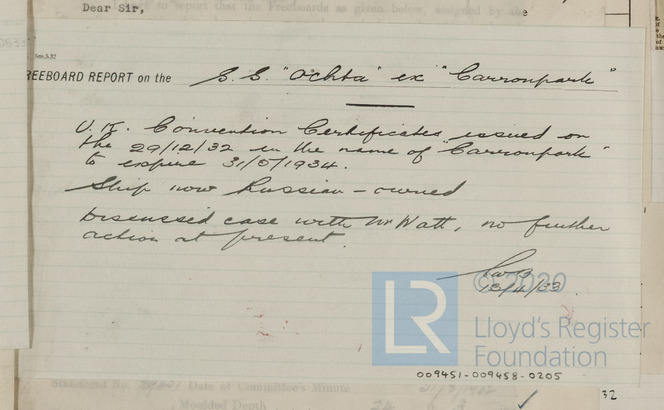 Dear Sir,
report that the Freeboards as given below, assigned by the
REEBOARD REPORT on the S.S. "Ochta" ex "Carronpark"
U.K. Convention Certificates issued on
the 29/12/32 in the name of "Carronpark"
to expire 31/5/1934.
Ship now Russian-owned
Discussed case with Mr Watt, no further
action at present.
18/4/33
© 2020
LR
Lloyd's Register
Foundation
009451-009458-0205
Date of Committee's Minute
Moulded Depth
32